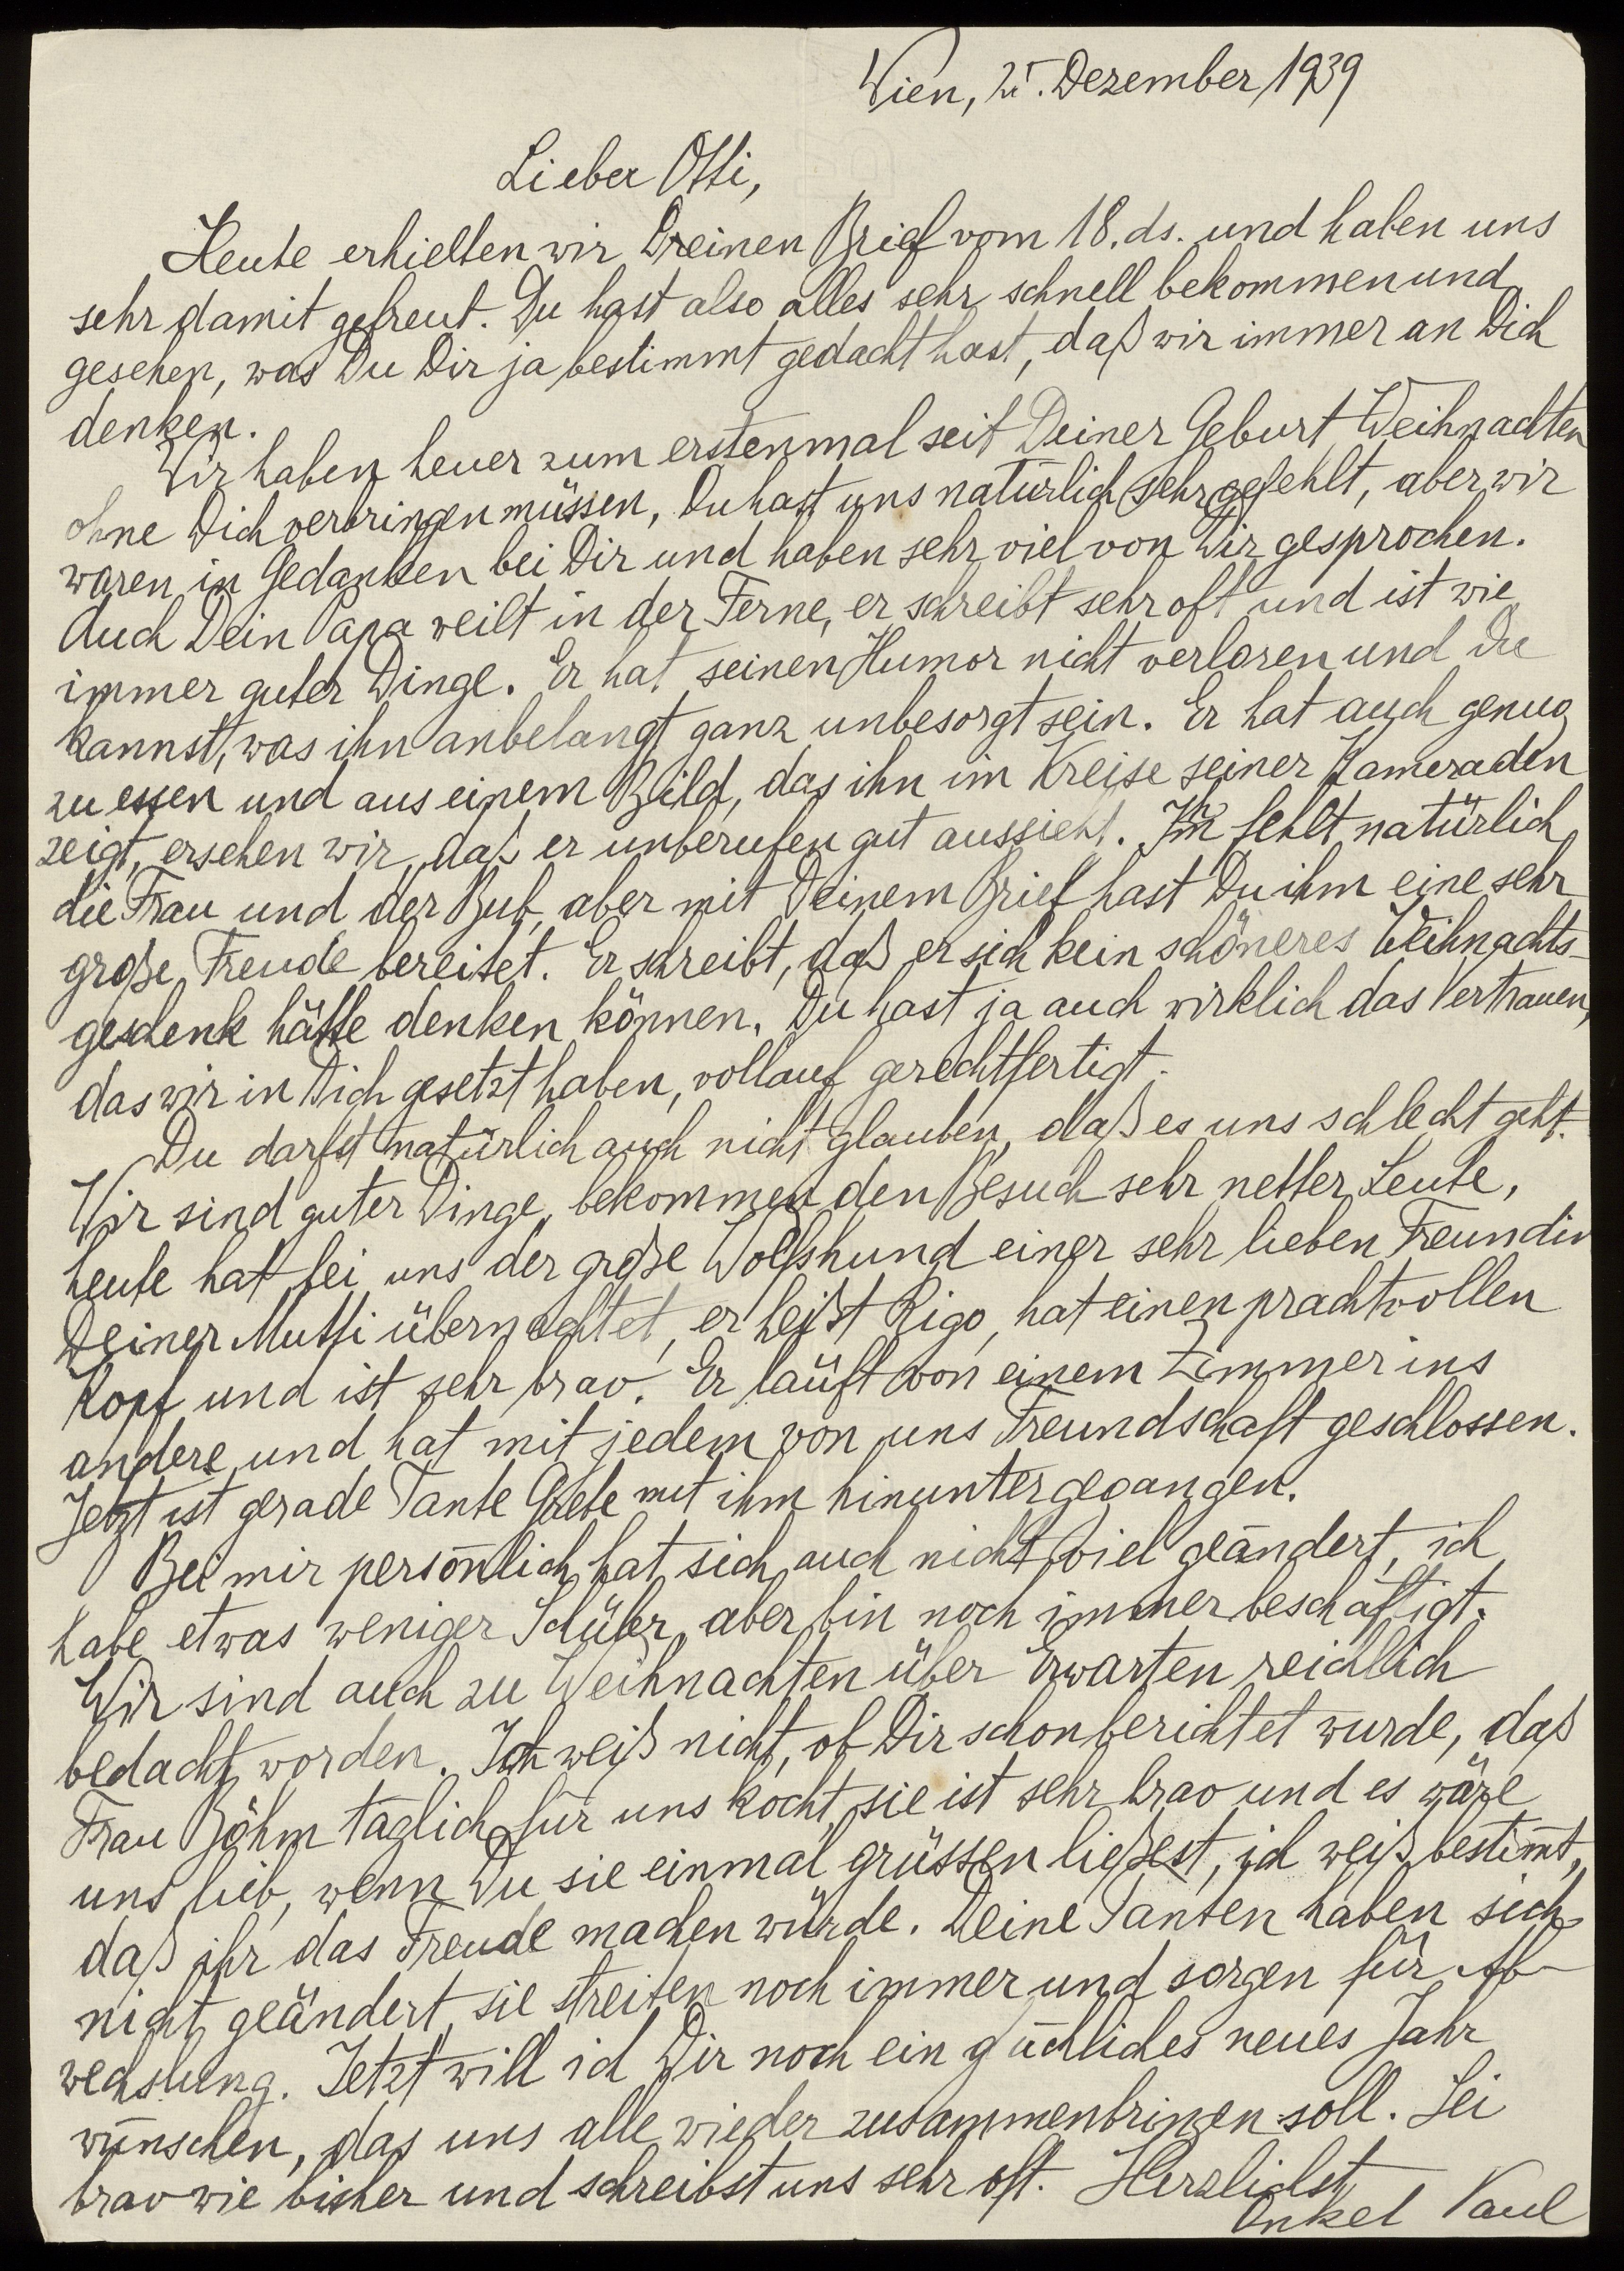 Wien, 25. Dezember 1939
Lieber Otti,
Heute erhielten wir Deinen Brief vom 18. ds. und haben uns
sehr damit gefreut. Du hast also alles sehr schnell bekommen und
gesehen, was Du Dir ja bestimmt gedacht hast, daß wir immer an Dich
denken.
Wir haben heuer zum erstenmal seit Deiner Geburt Weihnachten
ohne Dich verbringen müssen, Du hast uns natürlich sehr gefehlt, aber wir
waren in Gedanken bei Dir und haben sehr viel von Dir gesprochen.
Auch Dein Papa weilt in der Ferne, er schreibt sehr oft und ist wie
immer guter Dinge. Er hat seinen Humor nicht verloren und Du
kannst, was ihn anbelangt ganz unbesorgt sein. Er hat auch genug
zu essen und aus einem Bild, das ihn im Kreise seiner Kameraden
zeigt, ersehen wir, daß er unberufen gut aussieht. Ihm fehlt natürlich
die Frau und der Bub, aber mit Deinem Brief hast Du ihm eine sehr
große Freude bereitet. Er schreibt, daß er sich kein schöneres Weihnachts-
geschenk hätte denken können. Du hast ja auch wirklich das Vertrauen,
das wir in Dich gesetzt haben, vollauf gerechtfertigt.
Du darfst natürlich auch nicht glauben, daß es uns schlecht geht.
Wir sind guter Dinge, bekommen den Besuch sehr netter Leute,
heute hat bei uns der große Wolfshund einer sehr lieben Freundin
Deiner Mutti übernachtet, er heißt Rigo, hat einen prachtvollen
Kopf und ist sehr brav. Er läuft von einem Zimmer ins
andere und hat mit jedem von uns Freundschaft geschlossen.
Jetzt ist gerade Tante Grete mit ihm hinuntergegangen.
Bei mir persönlich hat sich auch nicht viel geändert, ich
habe etwas weniger Schüler, aber bin noch immer beschäftigt.
Wir sind auch zu Weihnachten über Erwarten reichlich
bedacht worden. Ich weiß nicht, ob Dir schon berichtet wurde, daß
Frau Böhm täglich für uns kocht, sie ist sehr brav und es wäre
uns lieb, wenn Du sie einmal grüssen ließest, ich weiß bestimmt,
daß ihr das Freude machen würde. Deine Tanten haben sich
nicht geändert, sie streiten noch immer und sorgen für Ab-
wechslung. Jetzt will ich Dir noch ein glückliches neues Jahr
wünschen, das uns alle wieder zusammenbringen soll. Sei
brav wie bisher und schreibst uns sehr oft. Herzlichst
Onkel Paul